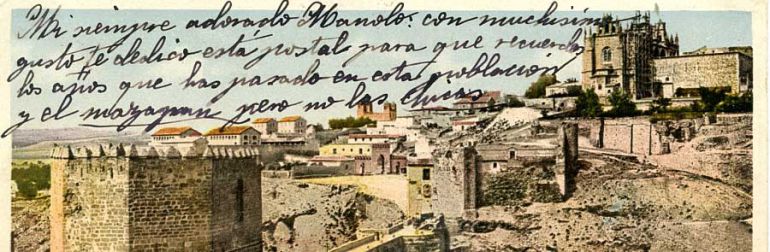 Mi siempre adorado Manolo: con muchisim
gusto te dedico está postal para que recuerdes
los años que has pasado en esta poblacion
y el mazapan pero no las chicas